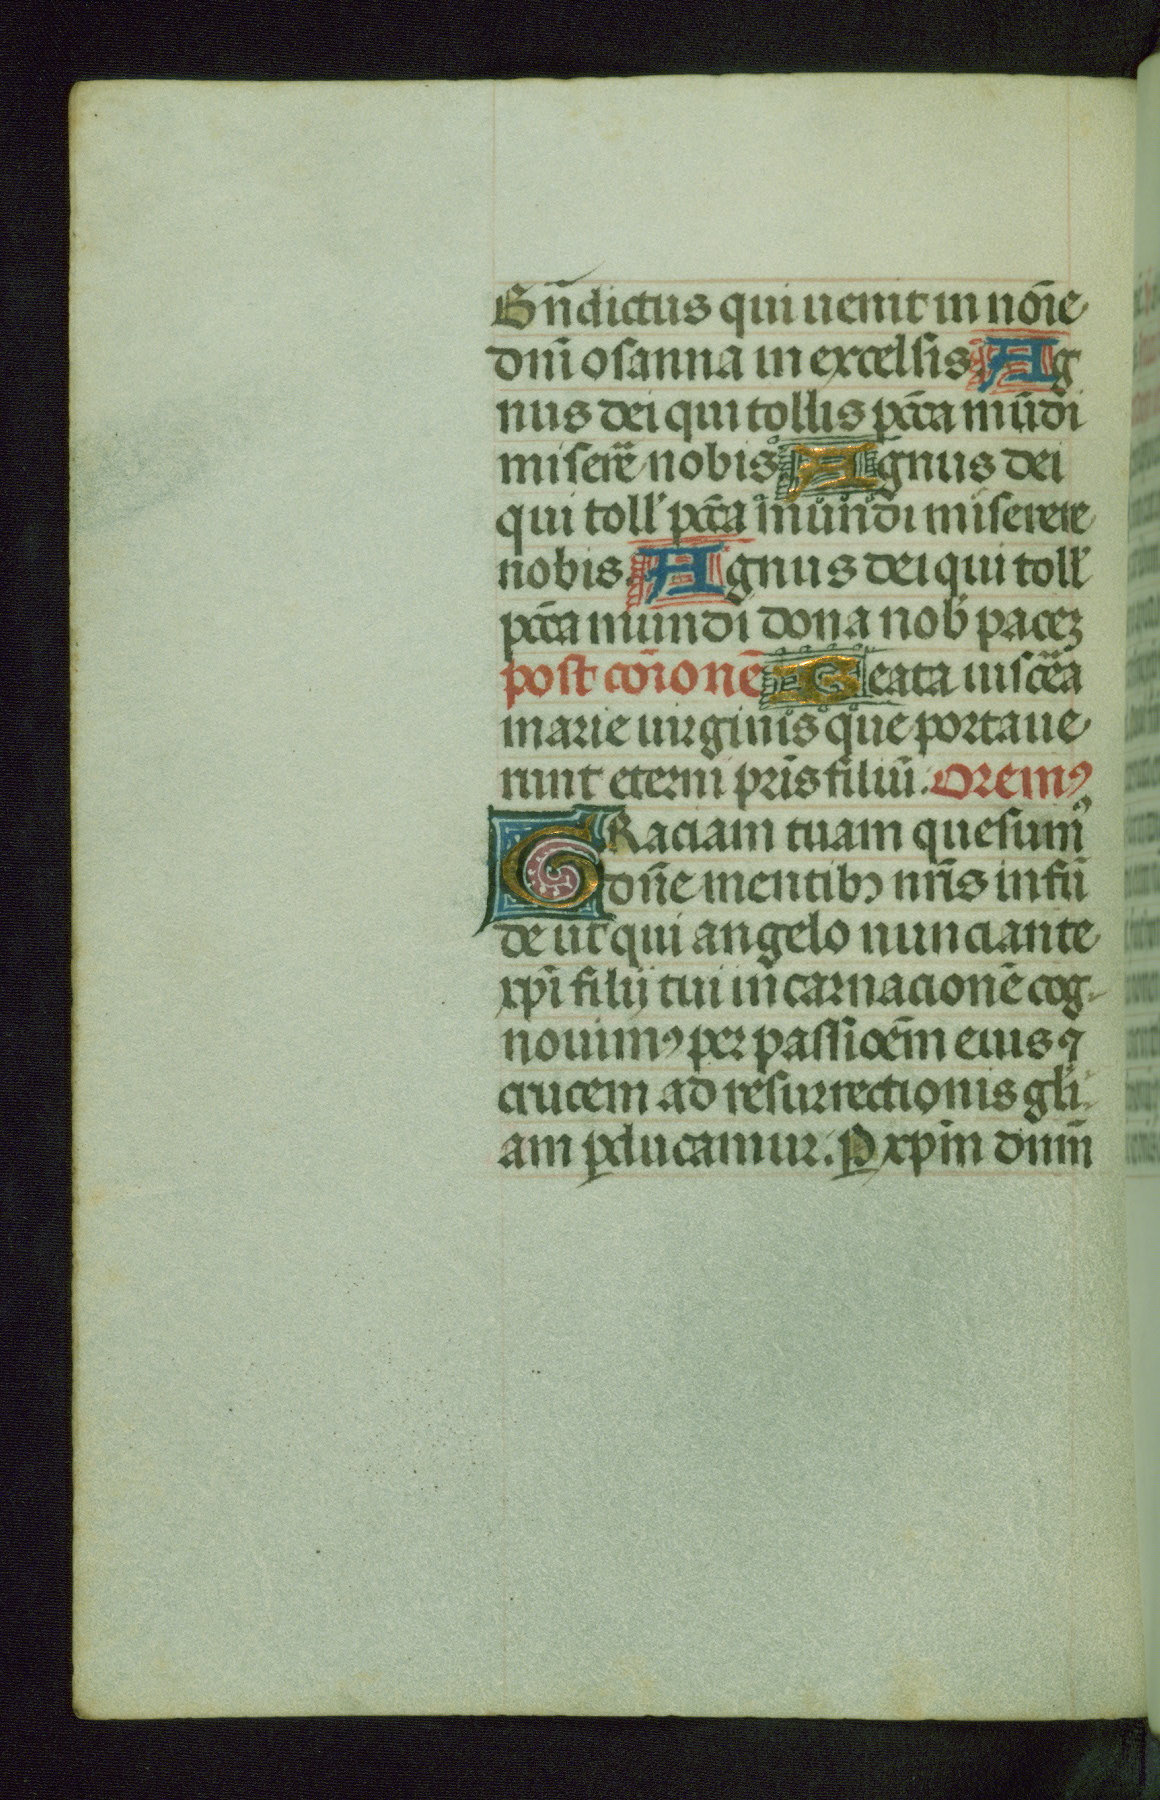 Bn̄dictus qui uenit in noīe
dnī osanna in excelsis Ag
nus dei qui tollis pctā mūdi
miserē nobis Agnus dei
qui toll' pctā mundi miserere
nobis. Agnus dei qui toll'
pctā mundi dona nob' pacez
post cōionē Beata uiscēa
marie uirginis que portaue
runt eterni pr̄is filiū. Oremꝰ
GRaciam tuam quesumꝰ
dn̄e mentibꝫ nr̄is infū
de ut qui angelo nunciante
xp̄i filij tui incarnacionē cog-
nouimꝰ per passioēm eius ⁊
crucem ad resurrectionis glī
am ꝑducamur. P xp̄m dnm̄